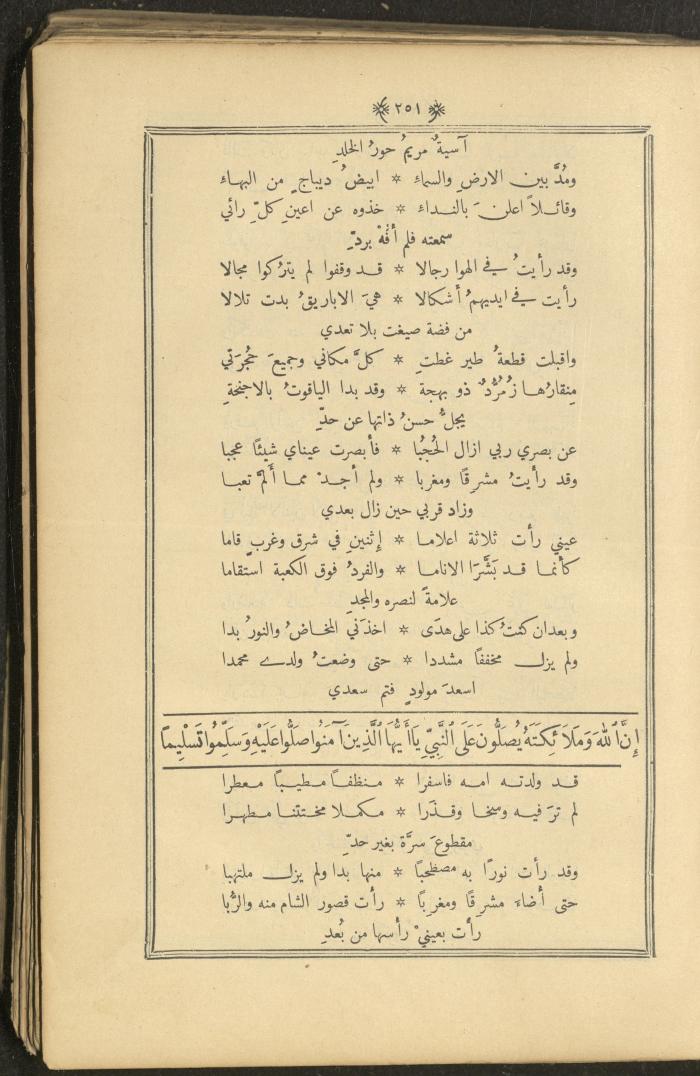 ﴿ ٢٥١ ﴾
آسيةٌ مريمُ حورُ الخلدِ
ومُدَّ بين الارضِ والسماءِ * ابيضُ ديباجٍ من البهاءِ
وقائلاً اعلنَ بالنداءِ * خذوه عن اعينِ كلِّ رائي
سمعته فلم أَفُهْ بردِّ
وقد رأيتُ في الهوا رجالا * قد وقفوا لم يتركوا مجالا
رأيت في ايديهمُ أشكالا * هيَ الاباريقُ بدت تلالا
من فضة صيغت بلا تعدي
واقبلت قطعةُ طير غطتِ * كلَّ مكاني وجميعَ حُجْرَتي
مِنقارُها زُمُرُّدٌ ذو بهجة * وقد بدا الياقوتُ بالاجنحةِ
يجلُّ حسنُ ذاتها عن حدِّ
عن بصري ربي ازال الحُجُبا * فأبصرت عيناي شيئًا عجبا
وقد رأيتُ مشرقًا ومغربا * ولم أجدْ مما أَلمَّ تعبا
وزاد قربي حين زال بعدي
عيني رأت ثلاثة اعلاما * إثنينِ في شرق وغربٍ قاما
كأنما قد بَشَّرَا الاناما * والفردُ فوق الكعبة استقاما
علامةً لنصره والمجدِ
وبعدان كنتُ كذا على هدَى * اخذَني المخاضُ والنورُ بدا
ولم يزل مخففًا مشددا * حتى وضعتُ ولدي محمدا
اسعدَ مولودٍ فتم سعدي
إِنَّ ٱللهَ وَمَلَائِكَتَهُ يُصَلُّونَ عَلَى ٱلنَّبِيِّ يَاأَيُّهَا ٱلَّذِينَ آمَنُوا صَلُّوا عَلَيْهِ وَسَلِّمُوا تَسْلِيمًا
قد ولدته امه فاسفرا * منظفًا مطيبًا معطرا
لم ترَ فيه وسخا وقذَرا * مكملا مختتنا مطهرا
مقطوعَ سرَّة بغير حدِّ
وقد رأت نورًا به مصطحبًا * منها بدا ولم يزل ملتهبا
حتى أضاءَ مشرقًا ومغربًا * رأت قصور الشام منه والرُّبا
رأت بعينيْ رأسها من بُعدِ